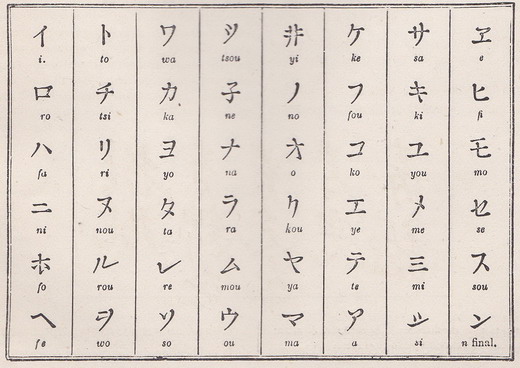 イ ト ワ ツ ヰ ケ サ ヱ
i. to wa tsou yi ke sa e
ロ チ カ 子 ノ フ キ ヒ
ro tsi ka ne no fou ki fi
ハ リ ヨ ナ オ コ ユ モ
fa ri yo na o ko you mo
ニ ヌ タ ラ ク エ メ セ
ni nou ta ra kou ye me se
ホ ル レ ム ヤ テ ミ ス
fo rou re mou ya te mi sou
ヘ ヲ ソ ウ マ ア シ ン
fe wo so ou ma a si n final.